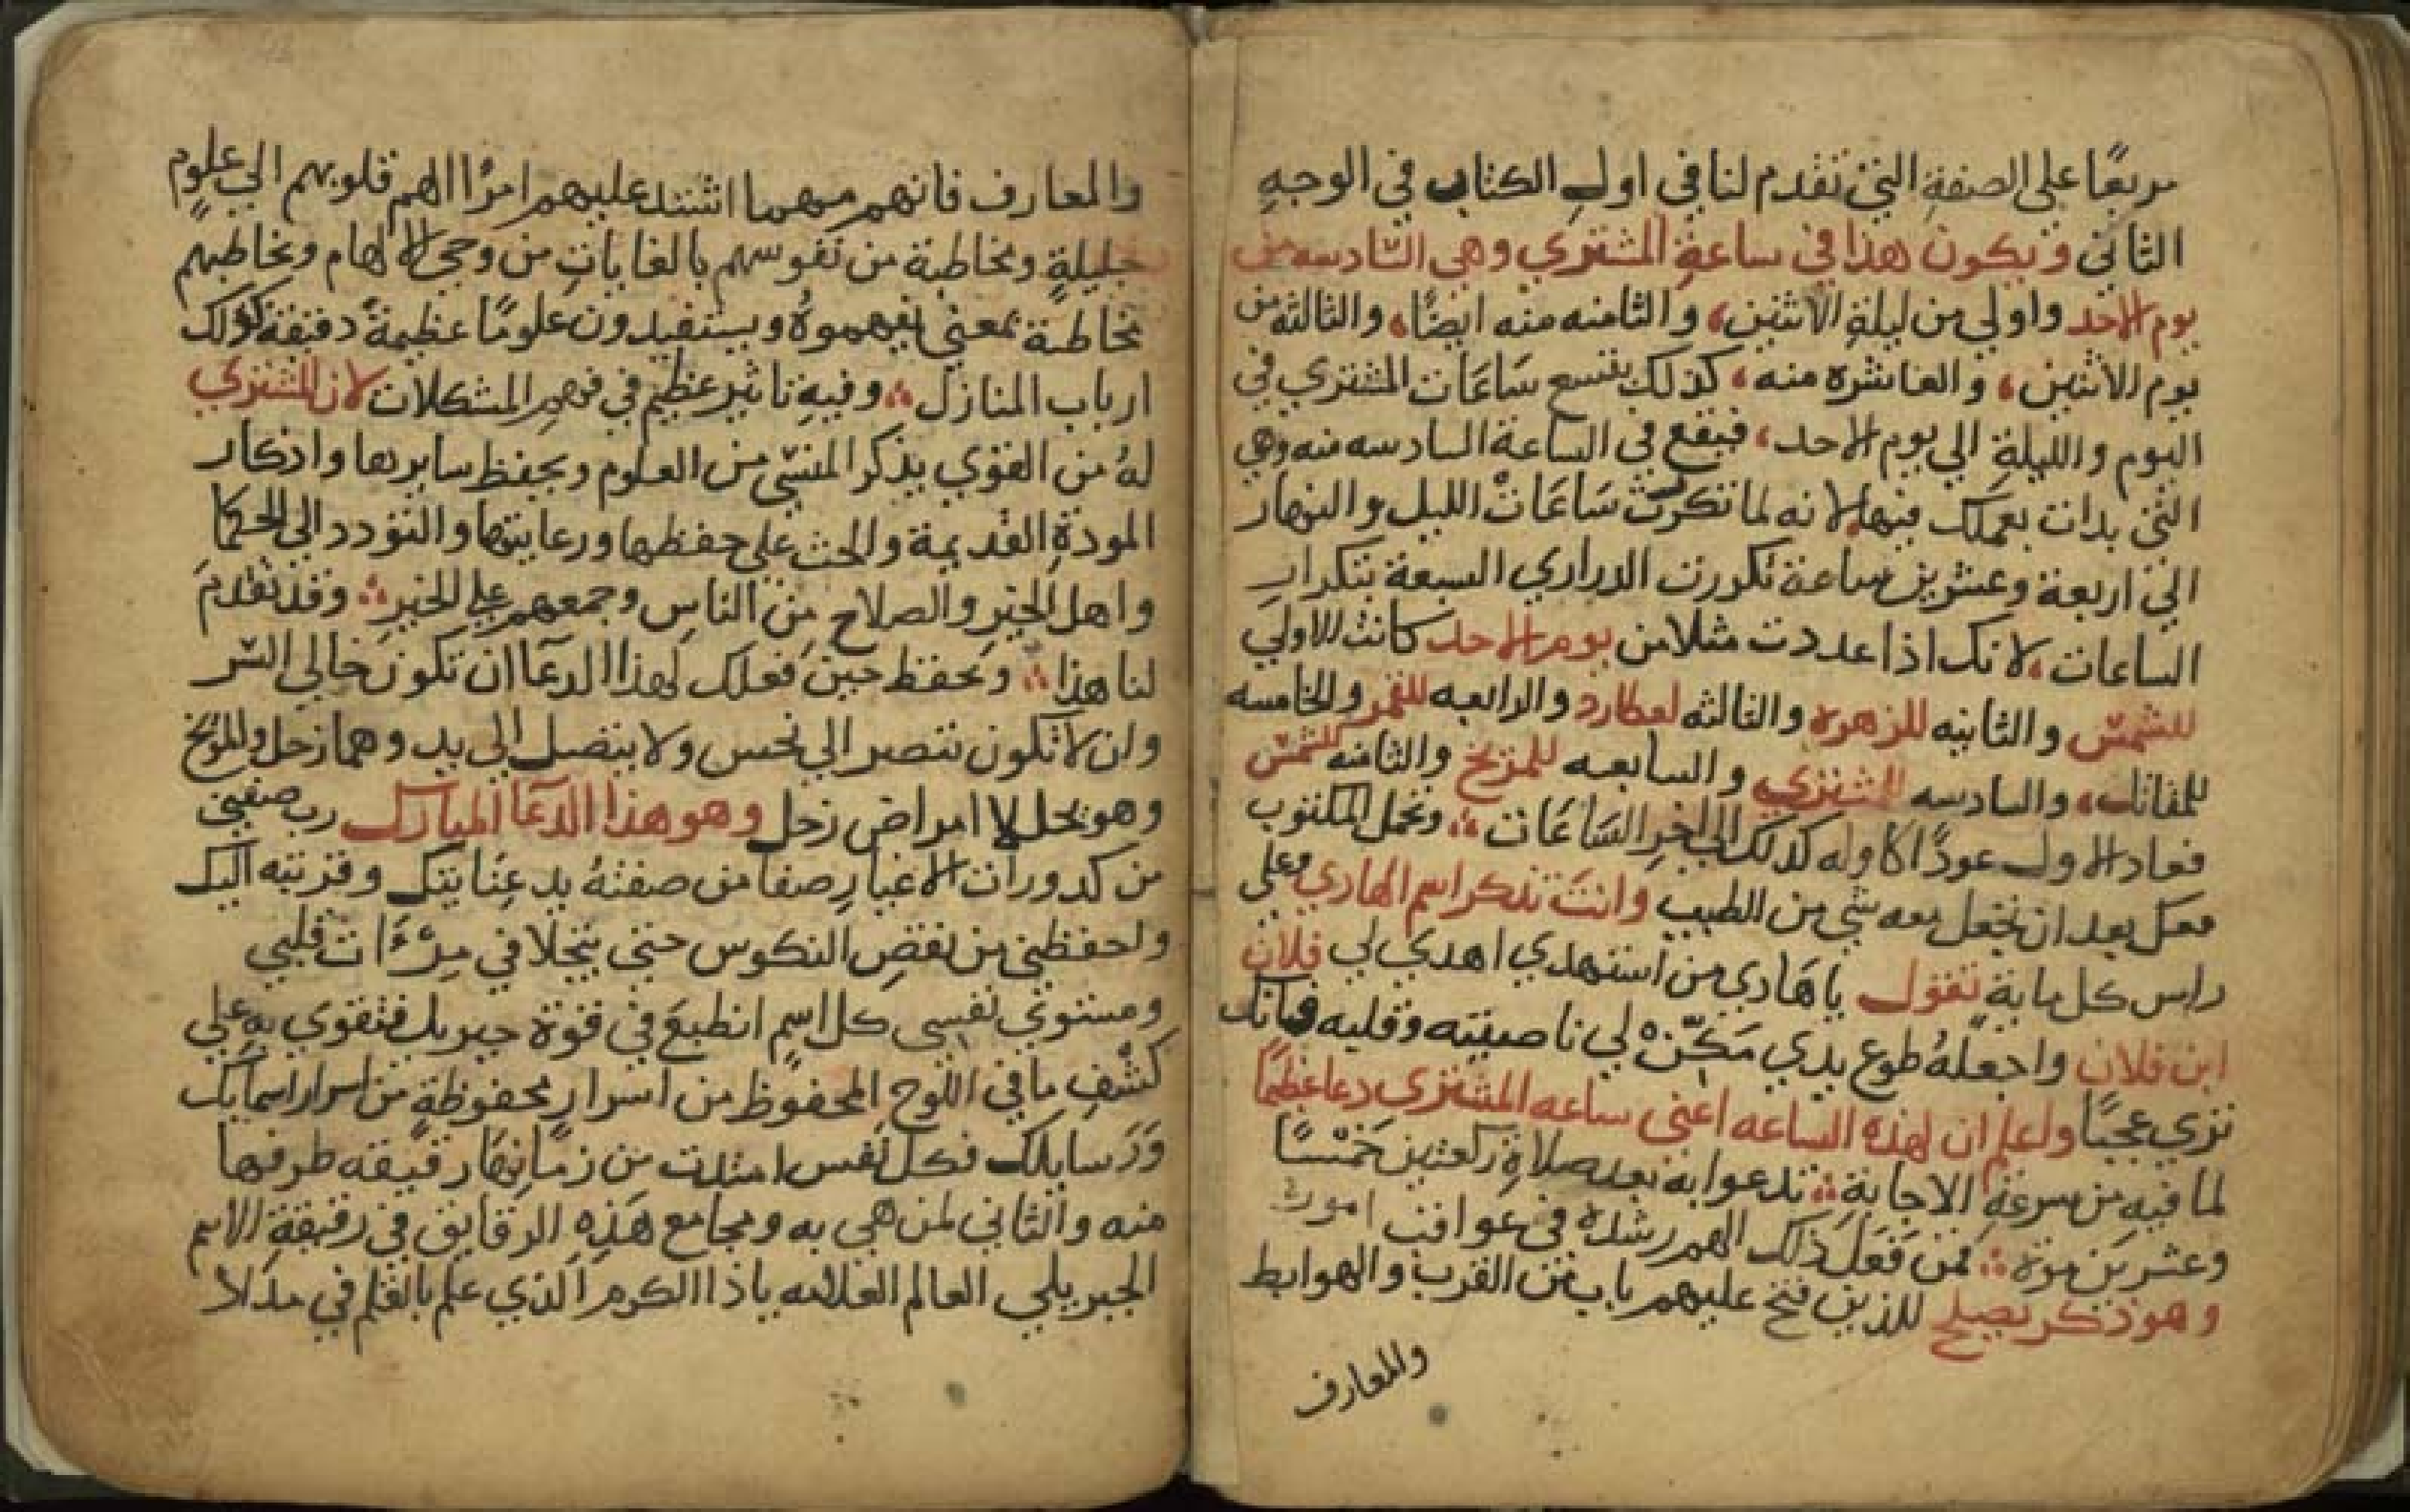 مربعًا على الصفة التي تقدم لنا في اول الكتاب في الوجه
الثاني ويكون هذا في ساعة المشتري وهي السادسه من
يوم الاحد واولي من ليلة الاثنين، والثامنه منه ايضًا، والثالثه من
يوم الاثنين، والعاشره منه، كذلك تتبع ساعات المشتري في
اليوم والليلة الي يوم الاحد، فيقع في الساعة السادسه منه وهي
التي بدات بعملك فيها، لانه لما تكررت ساعات الليل والنهار
الي اربعة وعشرين ساعة تكررت الدراري السبعة بتكرار
الساعات، لانك اذا عددت مثلا من يوم الاحد كانت الاولي
للشمس والثانيه للزهره والثالثه لعطارد والرابعه للقمر والخامسه
للمقاتل، والسادسه للمشتري والسابعه للمريخ والثامنه للشمس
فعاد الاول عودًا كاوله كذلك الي اخر الساعات؛ وتحمل المكتوب
معك بعد ان تجعل معه شي من الطيب وانت تذكر اسم الهادي وعلى
راس كل ماية تقول يا هادي من استهدي اهدي لي فلان
ابن فلان واجعله طوع يدي مَكّنّ لي ناصيته وقلبه فانك
تري عجبًا واعلم ان لهذه الساعه اعني ساعه المشتري دعا عظيمًا
لما فيه من سرعة الاجابة؛ تدعوا به بعد صلاة ركعتين خمسًا
وعشرين مرة؛ فمن فعل ذلك الهم رشده في عواقب اموره
وهو ذكر يصلح للذين فتح عليهم باب من القرب والهوابط
والمعارف
والمعارف فانهم مهما اشتد عليهم امرًا الهم قلوبهم الي علوم
جليلةٍ ومخاطبة من نفوسهم بالغايات من وحي الالهام وتخاطبهم
مخاطبة بمعني يفهموهُ ويستفيدون علومًا عظيمةً دقيقة كذلك
ارباب المنازل؛ وفيه تاثير عظيم في فهم المشكلات لان المشتري
لهُ من القوي يذكر المنسي من العلوم ويحفظ سايرها واذكار
المودة القديمة والحث علي حفظها ورعايتها والتودد الي الحكما
واهل الخير والصلاح من الناس وجمعهم علي الخير؛ وقد تقدم
لنا هذا؛ وتحفظ حين فعلك لهذا الدعا ان تكون خالي السر
وان لا تكون تنصر الي نحس ولا يتصل الي يد وهما زحل والمريخ
وهو يحل لا امراض زحل وهو هذا الدعا المبارك رب صفيني
من كدورات الاغيار صفا من صفتهُ يد عنايتك وقربته اليك
واحفظني من نقص النكوس حتي يتجلا في مراءات قلبي
ومستوي نفسي كل اسم انطبع في قوة جبريل فتقوي به علي
كشف ما في اللوح المحفوظ من اسرارٍ محفوظةٍ من اسرار اسمايك
ورسايلك فكل نفس امتدت من زمانها رقيقه طرفها
منه والثاني لمن هي به ومجامع هذه الرقايق في رقيقة الاسم
الجبريلي العالم العلامه ياذا الكرم الذي علم بالقلم في مدلا